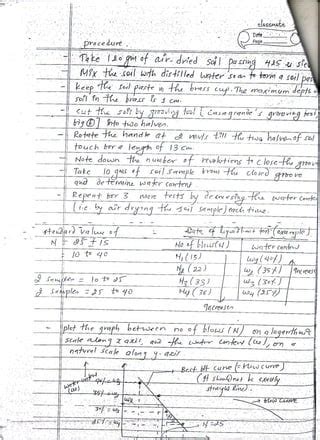 classmate
Date
Page
procedure.
- Take 120 gm of air-dried soil passing 425 u sie
Mix the soil with distilled water so as to form a soil pas
- Keep the soil paste in the brass cup. The maximum depth o
soil in the brass is 1 cm.
- Cut the soil by grooving tool [Casagrande's grooving tool
big ①] into two halves.
- Rotate the handle at 2 rev/s till the two halves of soil
touch for a length of 13 cm
- Note down the number of revolutions to close the groove
- Take 10 gms of soil sample from the closed groove
and determine water content
- Repeat for 3 more tests by decreasing the water conten
(i.e by air drying the soil sample) each time.
Standard value of
N = 25 ± 15
= 10 to 40
2 samples = 10 to 25
2 samples = 25 to 40
Data of liquid limit test (example)
No of blows (N) water content
N1 (15) w1 (40%)
N2 (22) w2 (35%)
N3 (33) w3 (30%)
N4 (36) w4 (25%)
increases
- plot the graph between no of blows (N) on a logarithmic
scale along x axis, and the water content (w), on a
natural scale along y-axis
water content
(w)
Best fit curve (= flow curve)
(It should not be exactly
straight line)
flow curve
N = 25